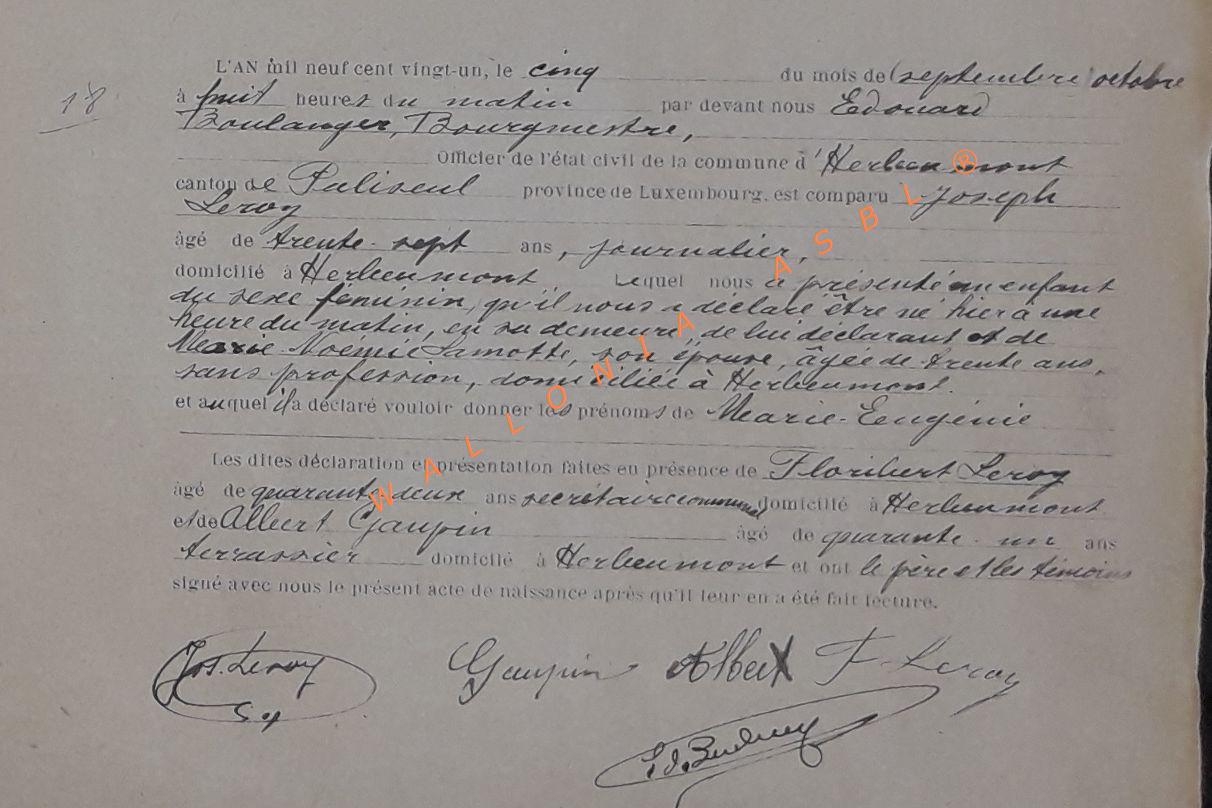 18
L'AN mil neuf cent vingt-un, le cinq du mois de (septembre) octobre
à huit heures du matin par devant nous Edouard
Boulanger, Bourgmestre,
Officier de l'état civil de la commune d'Herbeumont
canton de Paliseul province de Luxembourg, est comparu Joseph
Leroy
âgé de trente-sept ans, journalier,
domicilié à Herbeumont Lequel nous a présenté un enfant
du sexe féminin, qu'il nous a déclaré être né hier à une
heure du matin, en sa demeure, de lui déclarant et de
Marie-Noémie Lamotte, son épouse, âgée de trente ans,
sans profession, domiciliée à Herbeumont.
et auquel il a déclaré vouloir donner les prénoms de Marie-Eugénie
Les dites déclaration et présentation faites en présence de Floribert Leroy
âgé de quarante-deux ans secrétaire communal domicilié à Herbeumont
et de Albert Gaupin âgé de quarante-un ans
terrassier domicilié à Herbeumont et ont le père et les témoins
signé avec nous le présent acte de naissance après qu'il leur en a été fait lecture.
Jos. Leroy Gaupin Albert F. Leroy
WALLONIA ASBL ®